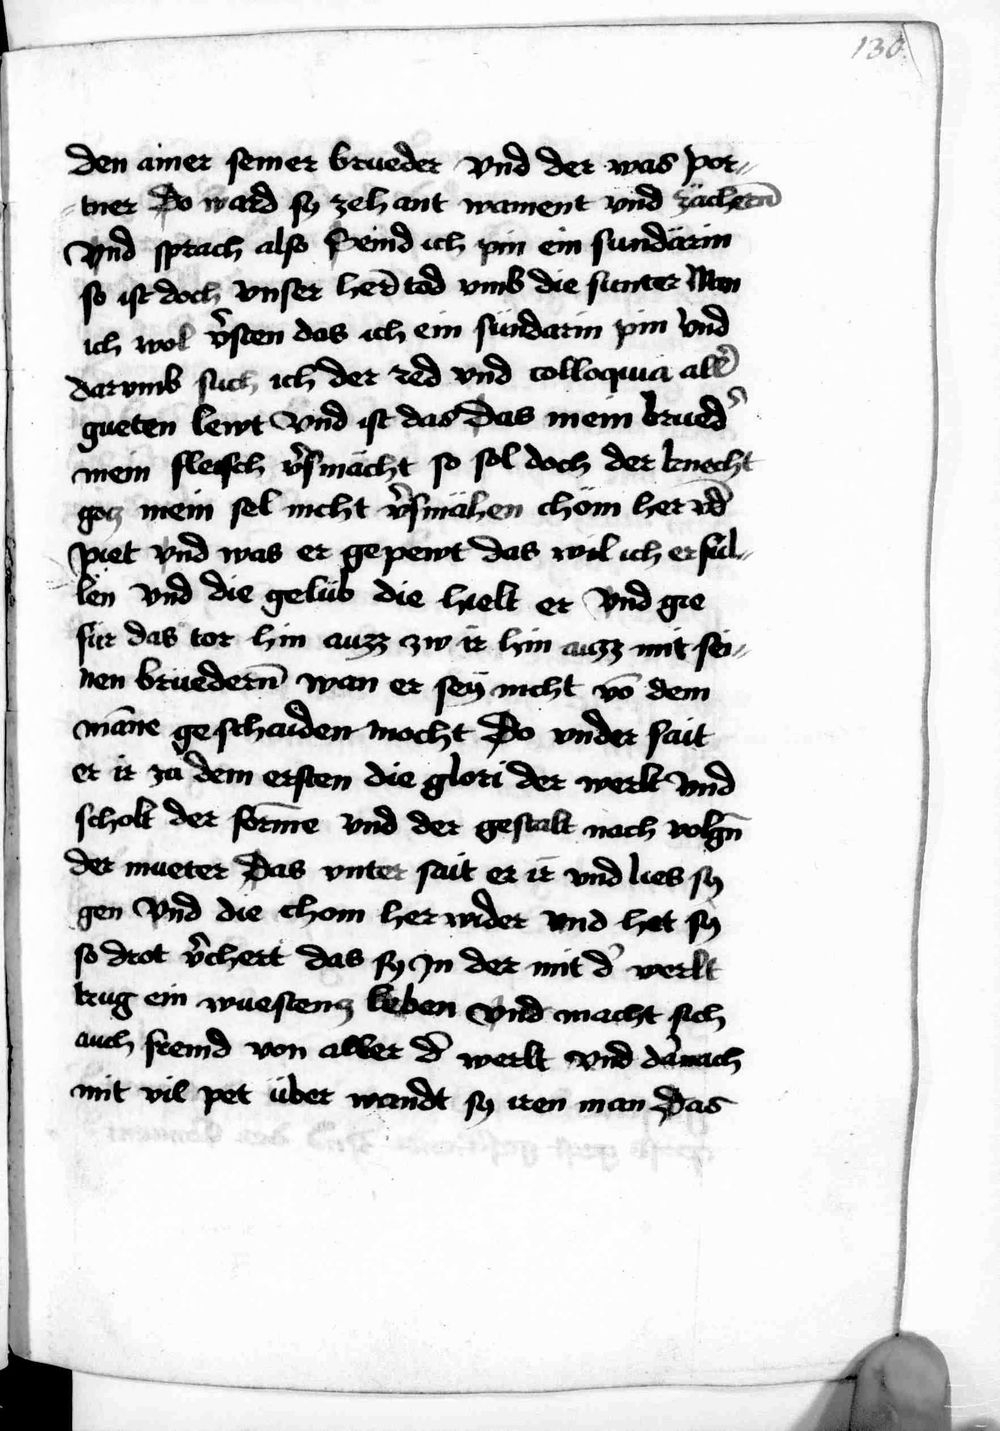 130.
den ainer seiner brueder vnd der was por-
-tner Do ward sy zehant wainent vnd zächern̄
vnd sprach also Seind ich pin ein sundärin
so ist doch vnser her̄ tod vmb die sunter Wan
ich wol v̾sten das ich ein sündarin pin vnd
darvmb such ich der red vnd colloquia all̾
gueten lewt vnd ist das Das mein brued̾
mein fleisch v̾smächt so sol doch der knecht
gotz mein sel nicht v̾smähen chöm her vnd
piet vnd was er gepewt das wil ich erfül-
len vnd die gelüb die hielt er vnd gie
für das tor hin auzz zw ir hin auzz mit sei-
nen brüedern̄ wan er sey nicht vō dem
mān̄e geschaiden mocht Do vnder sait
er ir zu dem ersten die glori der werlt vnd
scholt der form̄e vnd der gestalt nach volgn̄
der mueter Das vnter sait er ir vnd lies sy
gen vnd die chom her wider vnd het sy
so drot v̾chert das sy In der mit d̾ werlt
trug ein wuestenz leben vnd macht sich
auch fremd von aller d̾ werlt vnd darnach
mit vil pet über wandt sy iren man Das